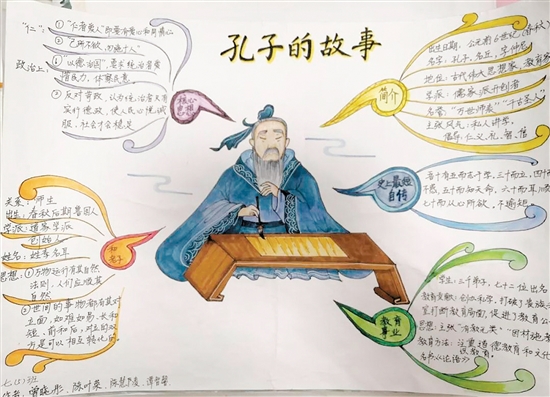 孔子的故事
"仁":
①"仁者爱人"即要有爱心和同情心
②"己所不欲,勿施于人"
政治上:
①"以德治国",要求统治者爱
惜民力,体察民意
②反对苛政,认为统治者只有
实行德政,使人民心悦诚
服,社会才会稳定
核心
思想
简介
出生日期:公元前6世纪(春秋)
名字:孔子,名丘,字仲尼
地位:古代伟大思想家,教育家
学派:儒家派开创者
名誉:"万世师表""千古圣人"
主张风气:私人讲学,
倡导仁、义、礼、智、信
史上最短
自传
吾十有五而志于学,三十而立,四十
不惑,五十而知天命,六十而耳顺
七十而从心所欲,不逾矩
教育
事业
学生:三千弟子,七十二位出名
教育贡献:创办私学,打破了贵族
垄断教育局面,促进了教育
思想:主张"有教无类""因材施教
教育方法:注重道德教育和文化
教育
和
老子
关系:师生
出生:春秋后期楚国人
学派:道家学派
创始人
姓名:姓李名耳
思想:①万物运行有其自然
法则,人们应顺其
自然
②世间的事物都有其对
立面,如难与易、长和
短、前和后;对立的双
方是可以相互转化的
七(5)班
作者:
陈叶荣